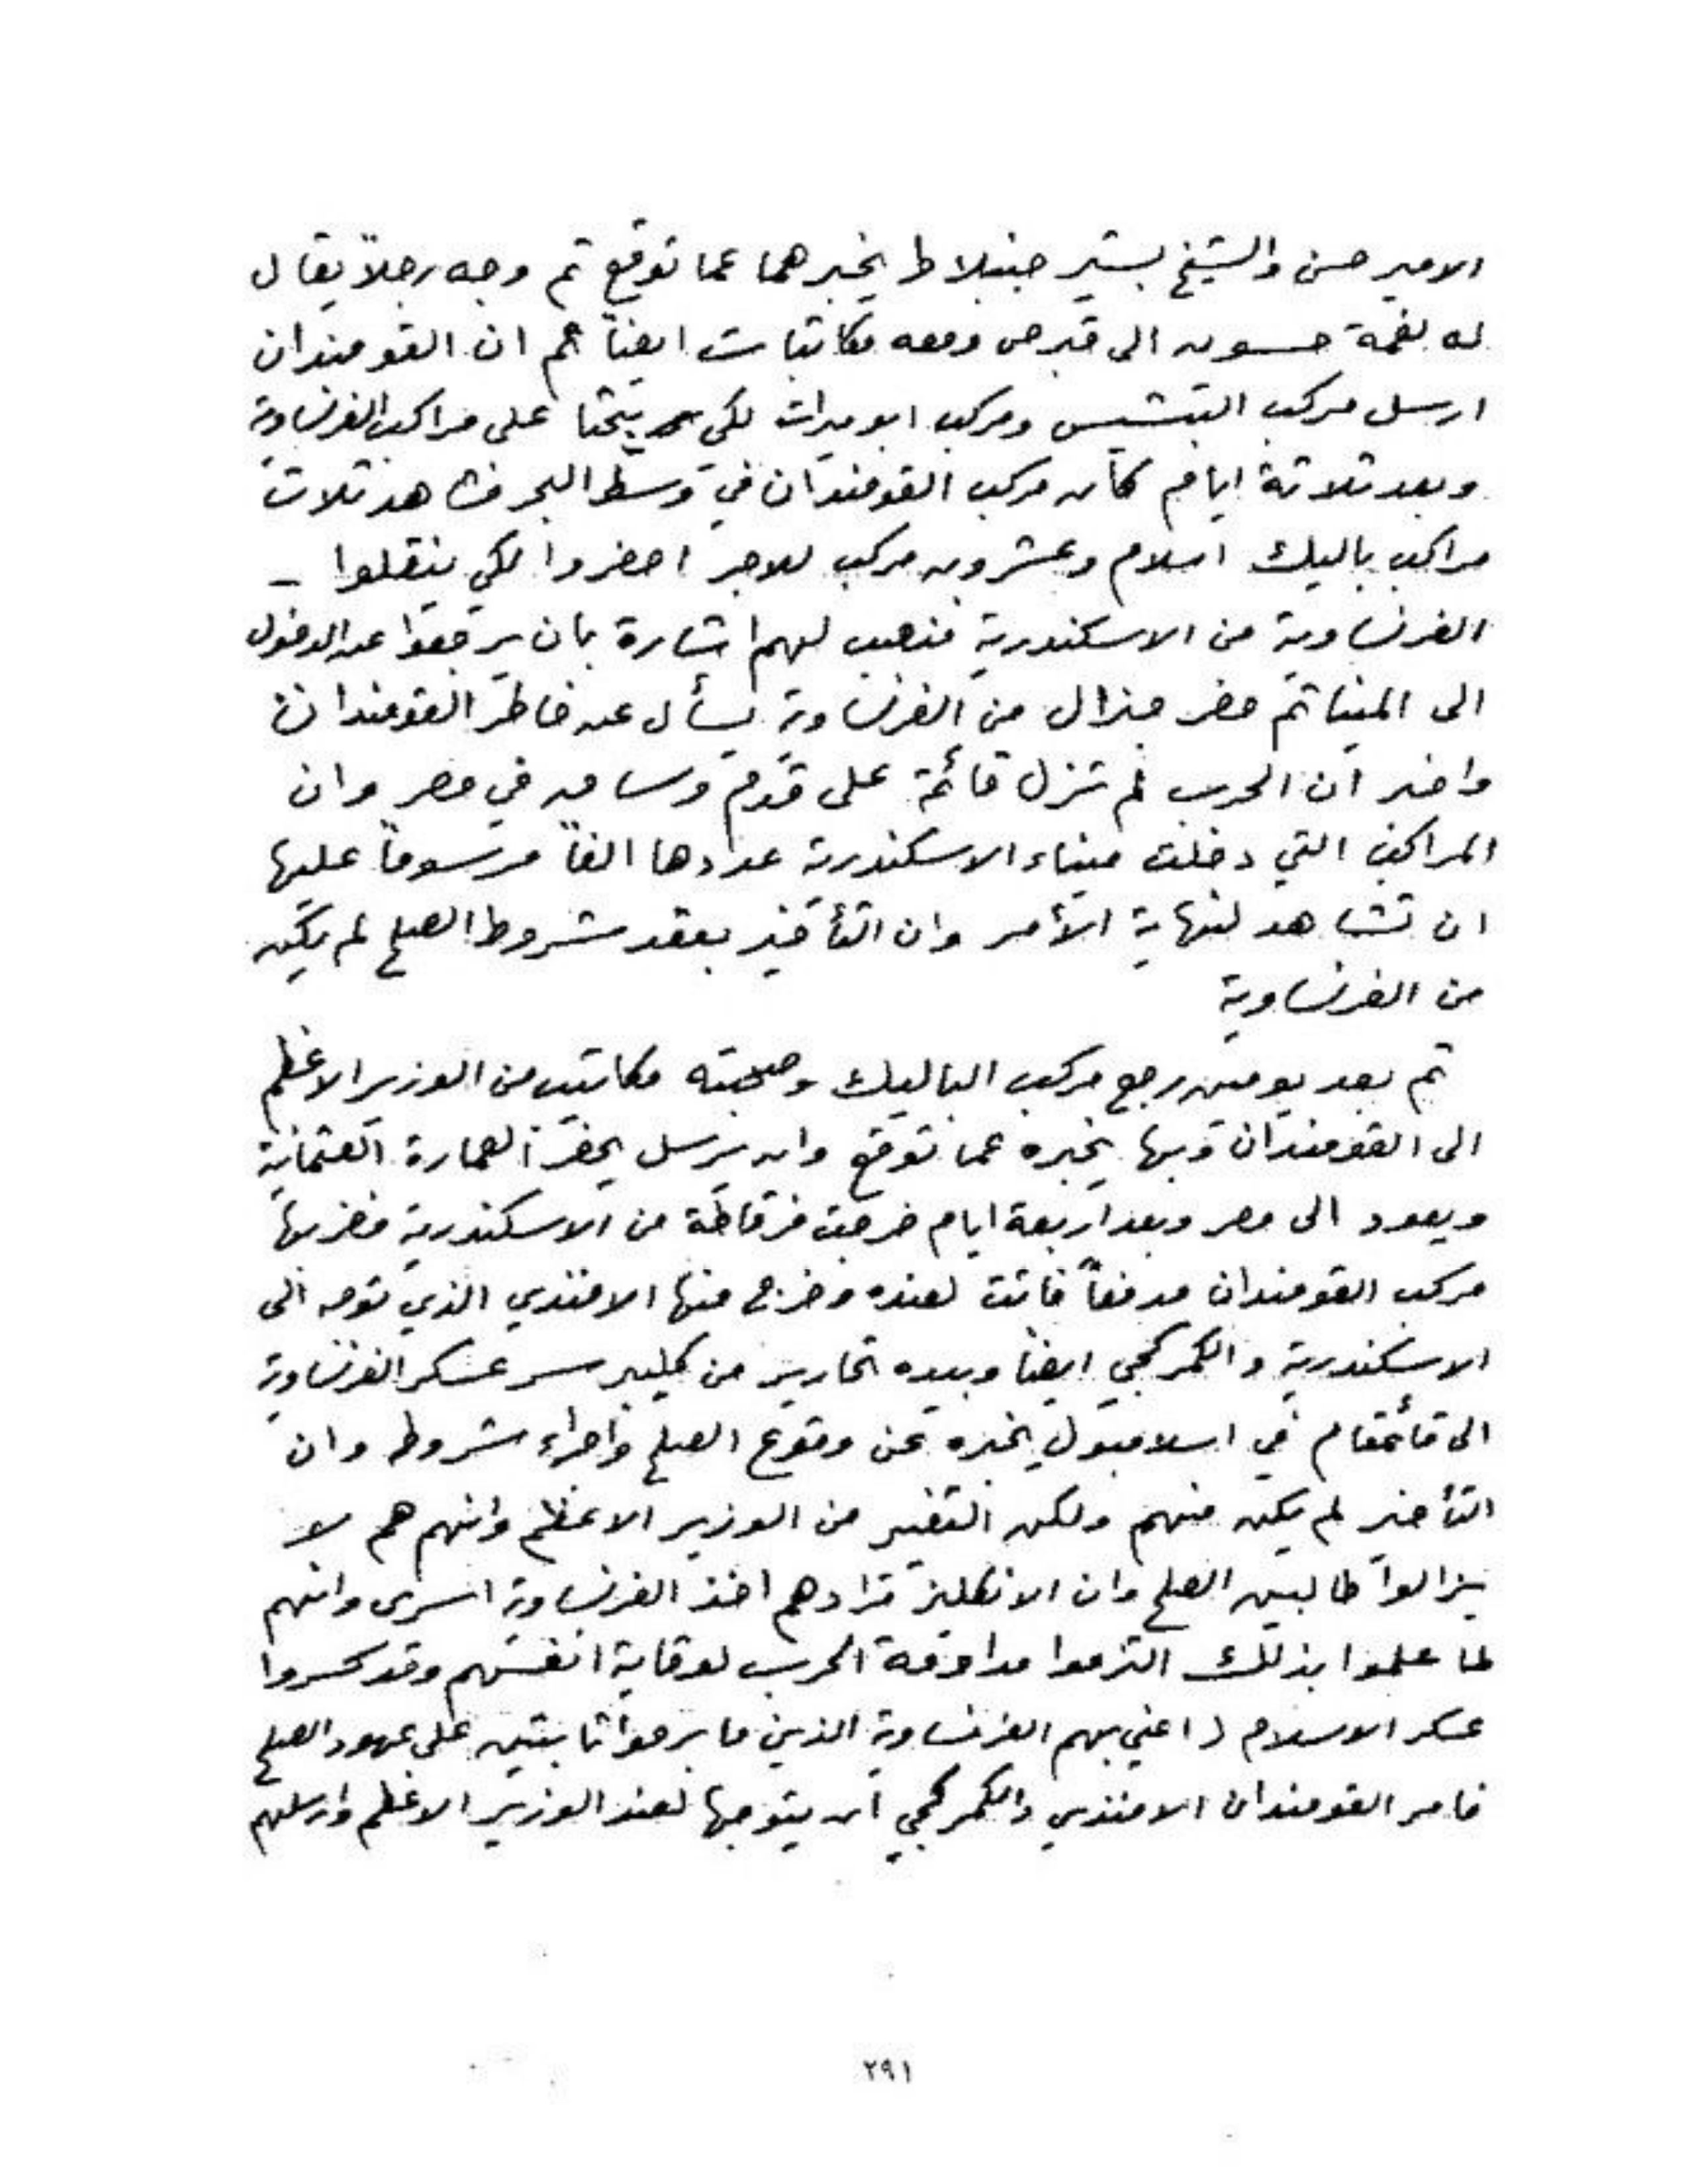 الامير حسن والشيخ بشير جنبلاط يخبرهما عما توقع ثم وجه رجلاً يقال
له نعمة حسون الى قبرص ومعه مكاتبات ايضاً ثم ان القومندان
ارسل مركب التيشيس ومركب ابو ميرات لكي على مراكب الفرنساوية
وبعد ثلاثة ايام كان مركب القومندان في وسط البحر فشاهد ثلاث
مراكب باليك اسلام وعشرون مركب للاجر احضروا لكي ينقلوا _
الفرنساوية من الاسكندرية لهم اشارة بان يرجعوا عن الدخول
الى المينا ثم حضر جنرال من الفرنساوية يسأل عن خاطر القومندان
واخبر ان الحرب لم تزل قائمة على قدم وساق في مصر وان
المراكب التي دخلت ميناء الاسكندرية عددها الفاً مرسوماً عليها
ان تشاهد لنهاية الأمر وان التأخير بعقد شروط الصلح لم يكن
من الفرنساوية
ثم بعد يومين رجع مركب الباليك وصحبته مكاتيب من الوزير الاعظم
الى القومندان وبها يخبره عما توقع وان يرسل يحضر العمارة العثمانية
ويعود الى مصر وبعد اربعة ايام خرجت فرقاطة من الاسكندرية فضربها
مركب القومندان مدفعاً فاتت لعنده وخرج منها الافندي الذي توجه الى
الاسكندرية والكمركجي ايضاً وبيده تحارير من كليبر سر عسكر الفرنساوية
الى قائمقام في اسلامبول يخبره عن وقوع الصلح واجراء شروطه وان
التأخير لم يكن منهم ولكن التغيير من الوزير الاعظم وانهم هم لا
يزالوا طالبين الصلح وان الانكليز مرادهم اخذ الفرنساوية اسرى وانهم
لما علموا بذلك التزموا مداومة الحرب لوقاية انفسهم وقد كسروا
عسكر الاسلام ( اعني بهم الفرنساوية الذين ما برحوا ثابتين على عهود الصلح
فامر القومندان الافندي والكمركجي ان يتوجها لعند الوزير الاعظم وارسلهم
٢٩١